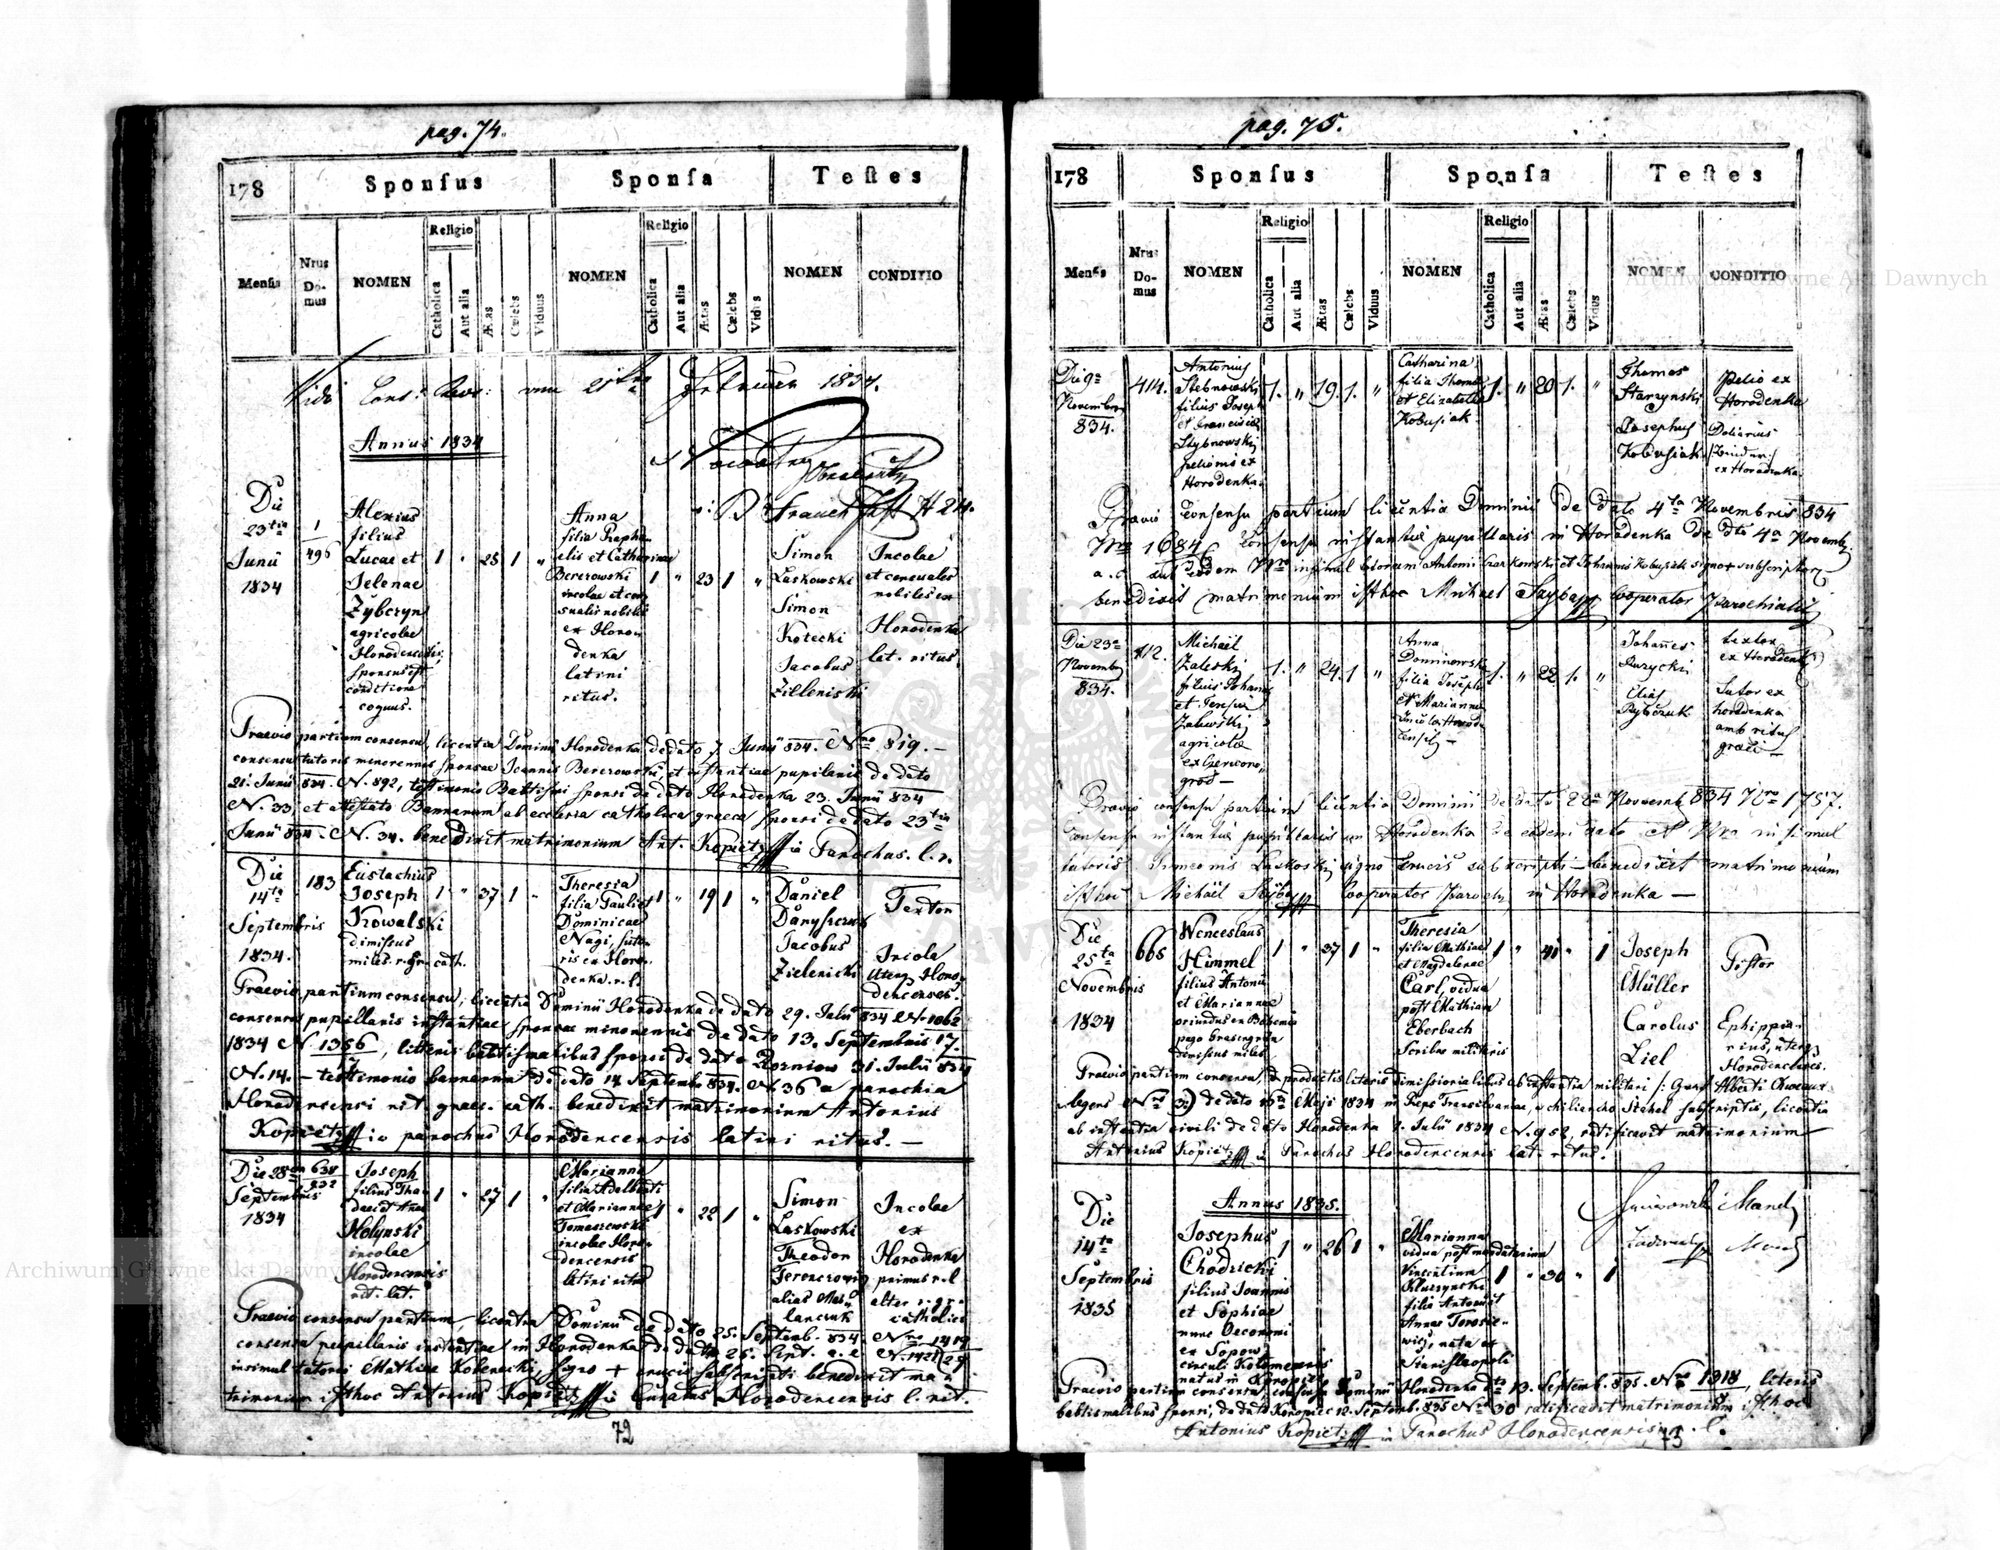 pag. 74.
178 Sponsus Sponsa Testes
Mensis Nrus Domus NOMEN Religio Catholica Aut alia Ætas Cœlebs Viduus NOMEN Religio Catholica Aut alia Ætas Cœlebs Vidua NOMEN CONDITIO
Vidi Februar 1834.
Annus 1834
Die 23tia Junii 1834
1
496
Alexius
filius
Lucae et
Helenae
Zybczyn
agricolae
Horodencensis
sponsus est
conditione
coquus.
1 " 25 1 "
Anna
filia Rapha-
elis et Catharinae
Berezowski
incolae et cen-
sualis nobilis
ex Horo-
denka
latini
ritus.
1 " 23 1 "
Simon
Laskowski
Simon
Kotecki
Jacobus
Zieleniski
Incolae
et censuales
nobiles ex
Horodenka
lat. ritus.
Praevio partium consensu, licentia Dominii Horodenka de dato 7 Junii 834. Nro 819. –
consensu tutoris minorennis sponsae Joannis Berezowski, et instantiae pupilaris de dato
21. Junii 834. N. 892, testimonio Battismi sponsi de dato Horodenka 23. Junii 834
N. 33, et attestato Bannorum ab ecclesia catholica graeca sponsi de dato 23tia
Junii 834. N. 34. benedixit matrimonium Ant. Kopietz Parochus. l. r.
Die
14ta
Septembris
1834.
183
Eustachius
Joseph
Kowalski
dimissus
miles r. gr. cath.
1 " 37 1 "
Theresia
filia Pauli et
Dominicae
Nagi, suto-
ris ex Horo-
denka. r. l.
1 " 19 1 "
Daniel
Jacobus
Zielenicki
Textor
Incola
uterq Horo-
dencenses.
Praevio partium consensu, licentia Dominii Horodenka de dato 29. Julii 834 N. 1062
consensu pupillaris instantiae sponsae minorennis de dato 13. Septembris 17
1834 N. 1356, litteris babtismalibus sponsi de dato Rozniow 31. Julii 834
N. 14. – testimonio bannorum de dato 14 Septembr 834. N. 36 a parochia
Horodencensi rit. graec. cath. benedixit matrimonium Antonius
Kopietz parochus Horodencensis latini ritus. –
Die 28va
Septembris
1834
638
Joseph
filius Tha-
daei et Annae
Holynski
incolae
Horodencensis
rit. lat.
1 " 27 1 "
Marianna
filia Adelberti
et Mariannae
Tomaszewski
incolae Horo-
dencensis
latini ritus
1 " 22 1 "
Simon
Laskowski
Theodor
alias
Incolae
ex
Horodenka
primus r. l
alter r. gr.
catholici
Praevio consensu partium, licentia Dominii de dato 25. Septemb. 834. Nro 1419
consensu pupillaris instantiae in Horodenka de dato 26. Sept. a. c. N. 1421/29
insimul tutoris Mathiae signo + crucis subscripti benedixit ma-
trimonium isthoc Antonius Kopietz Curatus Horodencensis l. rit.
72
pag. 75.
178 Sponsus Sponsa Testes
Mensis Nrus Domus NOMEN Religio Catholica Aut alia Ætas Cœlebs Viduus NOMEN Religio Catholica Aut alia Ætas Cœlebs Vidua NOMEN CONDITIO
Die 9a
Novembris
834.
414.
Antonius
Stebnowski
filius Joseph
et Francisca
Stybnowski
pelionis ex
Horodenka.
1. " 19. 1. "
Catharina
filia Thoma
et Elizabetha
Kobusiak
1. " 20 1. "
Thomas
Starzynski
Josephus
Kobusiak
Pelio ex
Horodenka
Doliarius
ex Horodenka.
Praevio Consensu partium licentia Dominii de dato 4ta Novembris 834
Nro 1684 Consensu instantiae pupillaris in Horodenka de dto 4a Novemb
benedixit matrimonium isthoc Michael Szyba Cooperator Parochialis
Die 23a
Novembr
834.
412.
Michaël
Zaleski
filius Johanis
et
Zaleski
agricola
1. " 24. 1. "
Anna
Dominowska
filia Josephi
et Marianna
1. " 22 1. "
Johannes
Ruzycki
Elias
Rybczuk
textor
ex Horodenka
Sutor ex
horodenka
amb ritus
graeci –
Praevio consensu partium licentia Dominii de dato 22a Novemb 834 Nro 1757.
Consensu instantiae pupillaris in Horodenka de eodem dato et Nro insimul
tutoris Simeonis Laskoski signo Crucis subscripti – benedixit matrimonium
isthoc Michaël Szyba Cooperator Paroch in Horodenka –
Die
25ta
Novembris
1834
665
Wenceslaus
Himmel
filius Antonii
et Mariannae
oriundus ex Bohemia
pago
dimissus miles
1 " 37 1 "
Theresia
filia Mathiae
et Magdalenae
Carl, vidua
post Mathiam
Eberbach
Scribae militaris
1 " 40 " 1
Joseph
Müller
Carolus
Ziel
Pistor
Ephippia-
rius, uterq
Horodencenses.
Praevio partium consensu, et productis literis dimissorialibus ab instantia militari
de dato 16ta Maji 1834 subscriptis, licentia
ab instantia civili de dato Horodenka 1. Julii 1834 N. 952, ratificavit matrimonium
Antonius Kopietz Parochus Horodencensis lat. ritus.
Annus 1835.
Die
14ta
Septembris
1835
Josephus
Chodzicki
filius Joannis
et Sophiae
nunc Oeconomi
ex Sopow
circuli Kolomeensis
natus in Koropiec
1 " 26 1 "
Marianna
vidua post mandatarium
Vincentium
filia Antonii et
Annae Torosie-
wicz, nata ex
Stanislaopoli
1 " 30 " 1
Praevio partium consensu, consensu Dominii Horodenka dto 13. Septemb. 835. Nro 1318, literis
babtismalibus sponsi, de dato Koropiec 12. Septemb. 835 Nro 30 ratificavit matrimonium isthoc
Antonius Kopietz Parochus Horodencensis r. l.
73
Archiwum Główne Akt Dawnych
Archiwum Główne Akt Dawnych